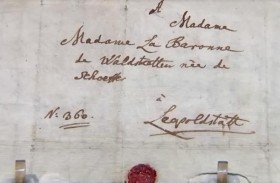 À Madame
Madame La Baronne
de Waldstetten née de
Schoeff
à
Leopoldstadt
N: 360.